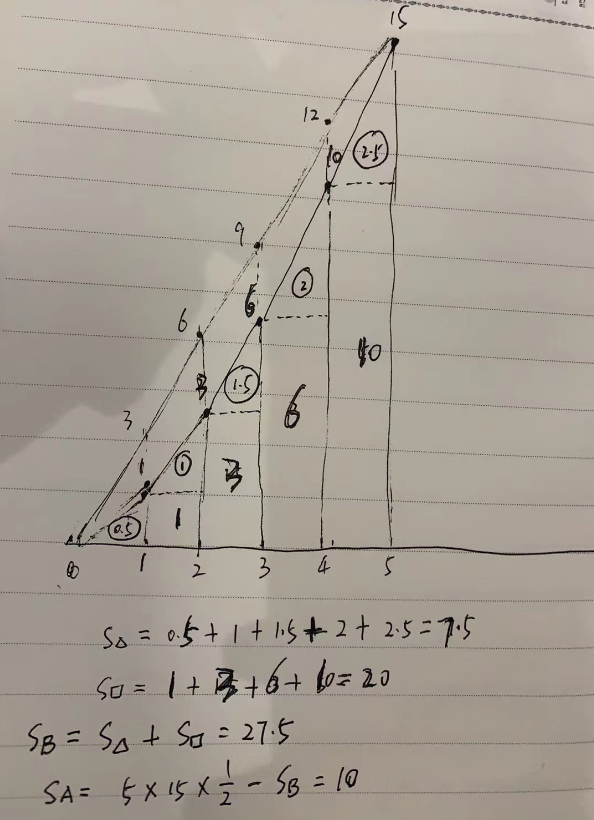 15
12
10
2.5
9
6
2
6
10
3
1.5
6
3
1
1
3
0.5
1
0
1
2
3
4
5
S△ = 0.5 + 1 + 1.5 + 2 + 2.5 = 7.5
S□ = 1 + 3 + 6 + 10 = 20
SB = S△ + S□ = 27.5
SA = 5 × 15 × 1/2 - SB = 10